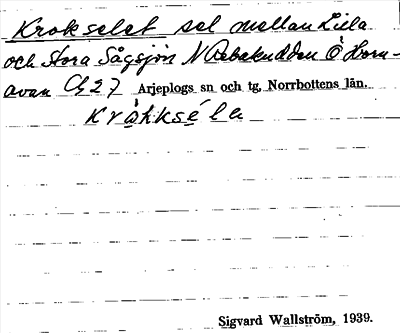 Krokselet sel mellan Lilla
och Stora Sågsjön N Rebakudden Ö Horn-
avan Arjeplogs sn och tg, Norrbottens län.
Kråkkséla
Sigvard Wallström, 1939.